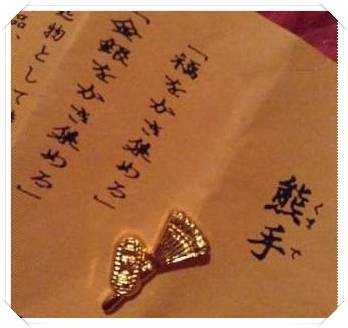 熊手
くまで
「福をかき集める」
「金銀をかき集める」
起物として
品、